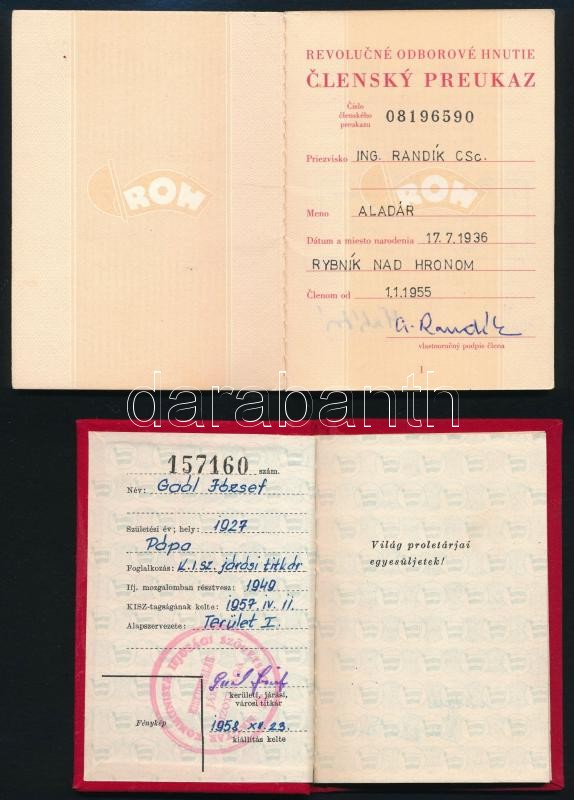 REVOLUČNÉ ODBOROVÉ HNUTIE
ČLENSKÝ PREUKAZ
Číslo
členského
preukazu
08196590
Priezvisko ING. RANDÍK CSc.
ROH ROH
Meno ALADÁR
Dátum a miesto narodenia 17.7.1936
RYBNÍK NAD HRONOM
Členom od 1.1.1955
A. Randík
vlastnoručný podpis člena
1
darabanth
157160 szám.
Név: Gaál József
Születési év; hely: 1927
Pápa
Foglalkozás: K.I.SZ. járási titkár
Ifj. mozgalomban résztvesz: 1949
KISZ-tagságának kelte: 1957. IV. 11.
Alapszervezete: Terület I.
Gaál József
kerületi, járási,
városi titkár
Fénykép
1958 XII. 23.
kiállítás kelte
Világ proletárjai
egyesüljetek!